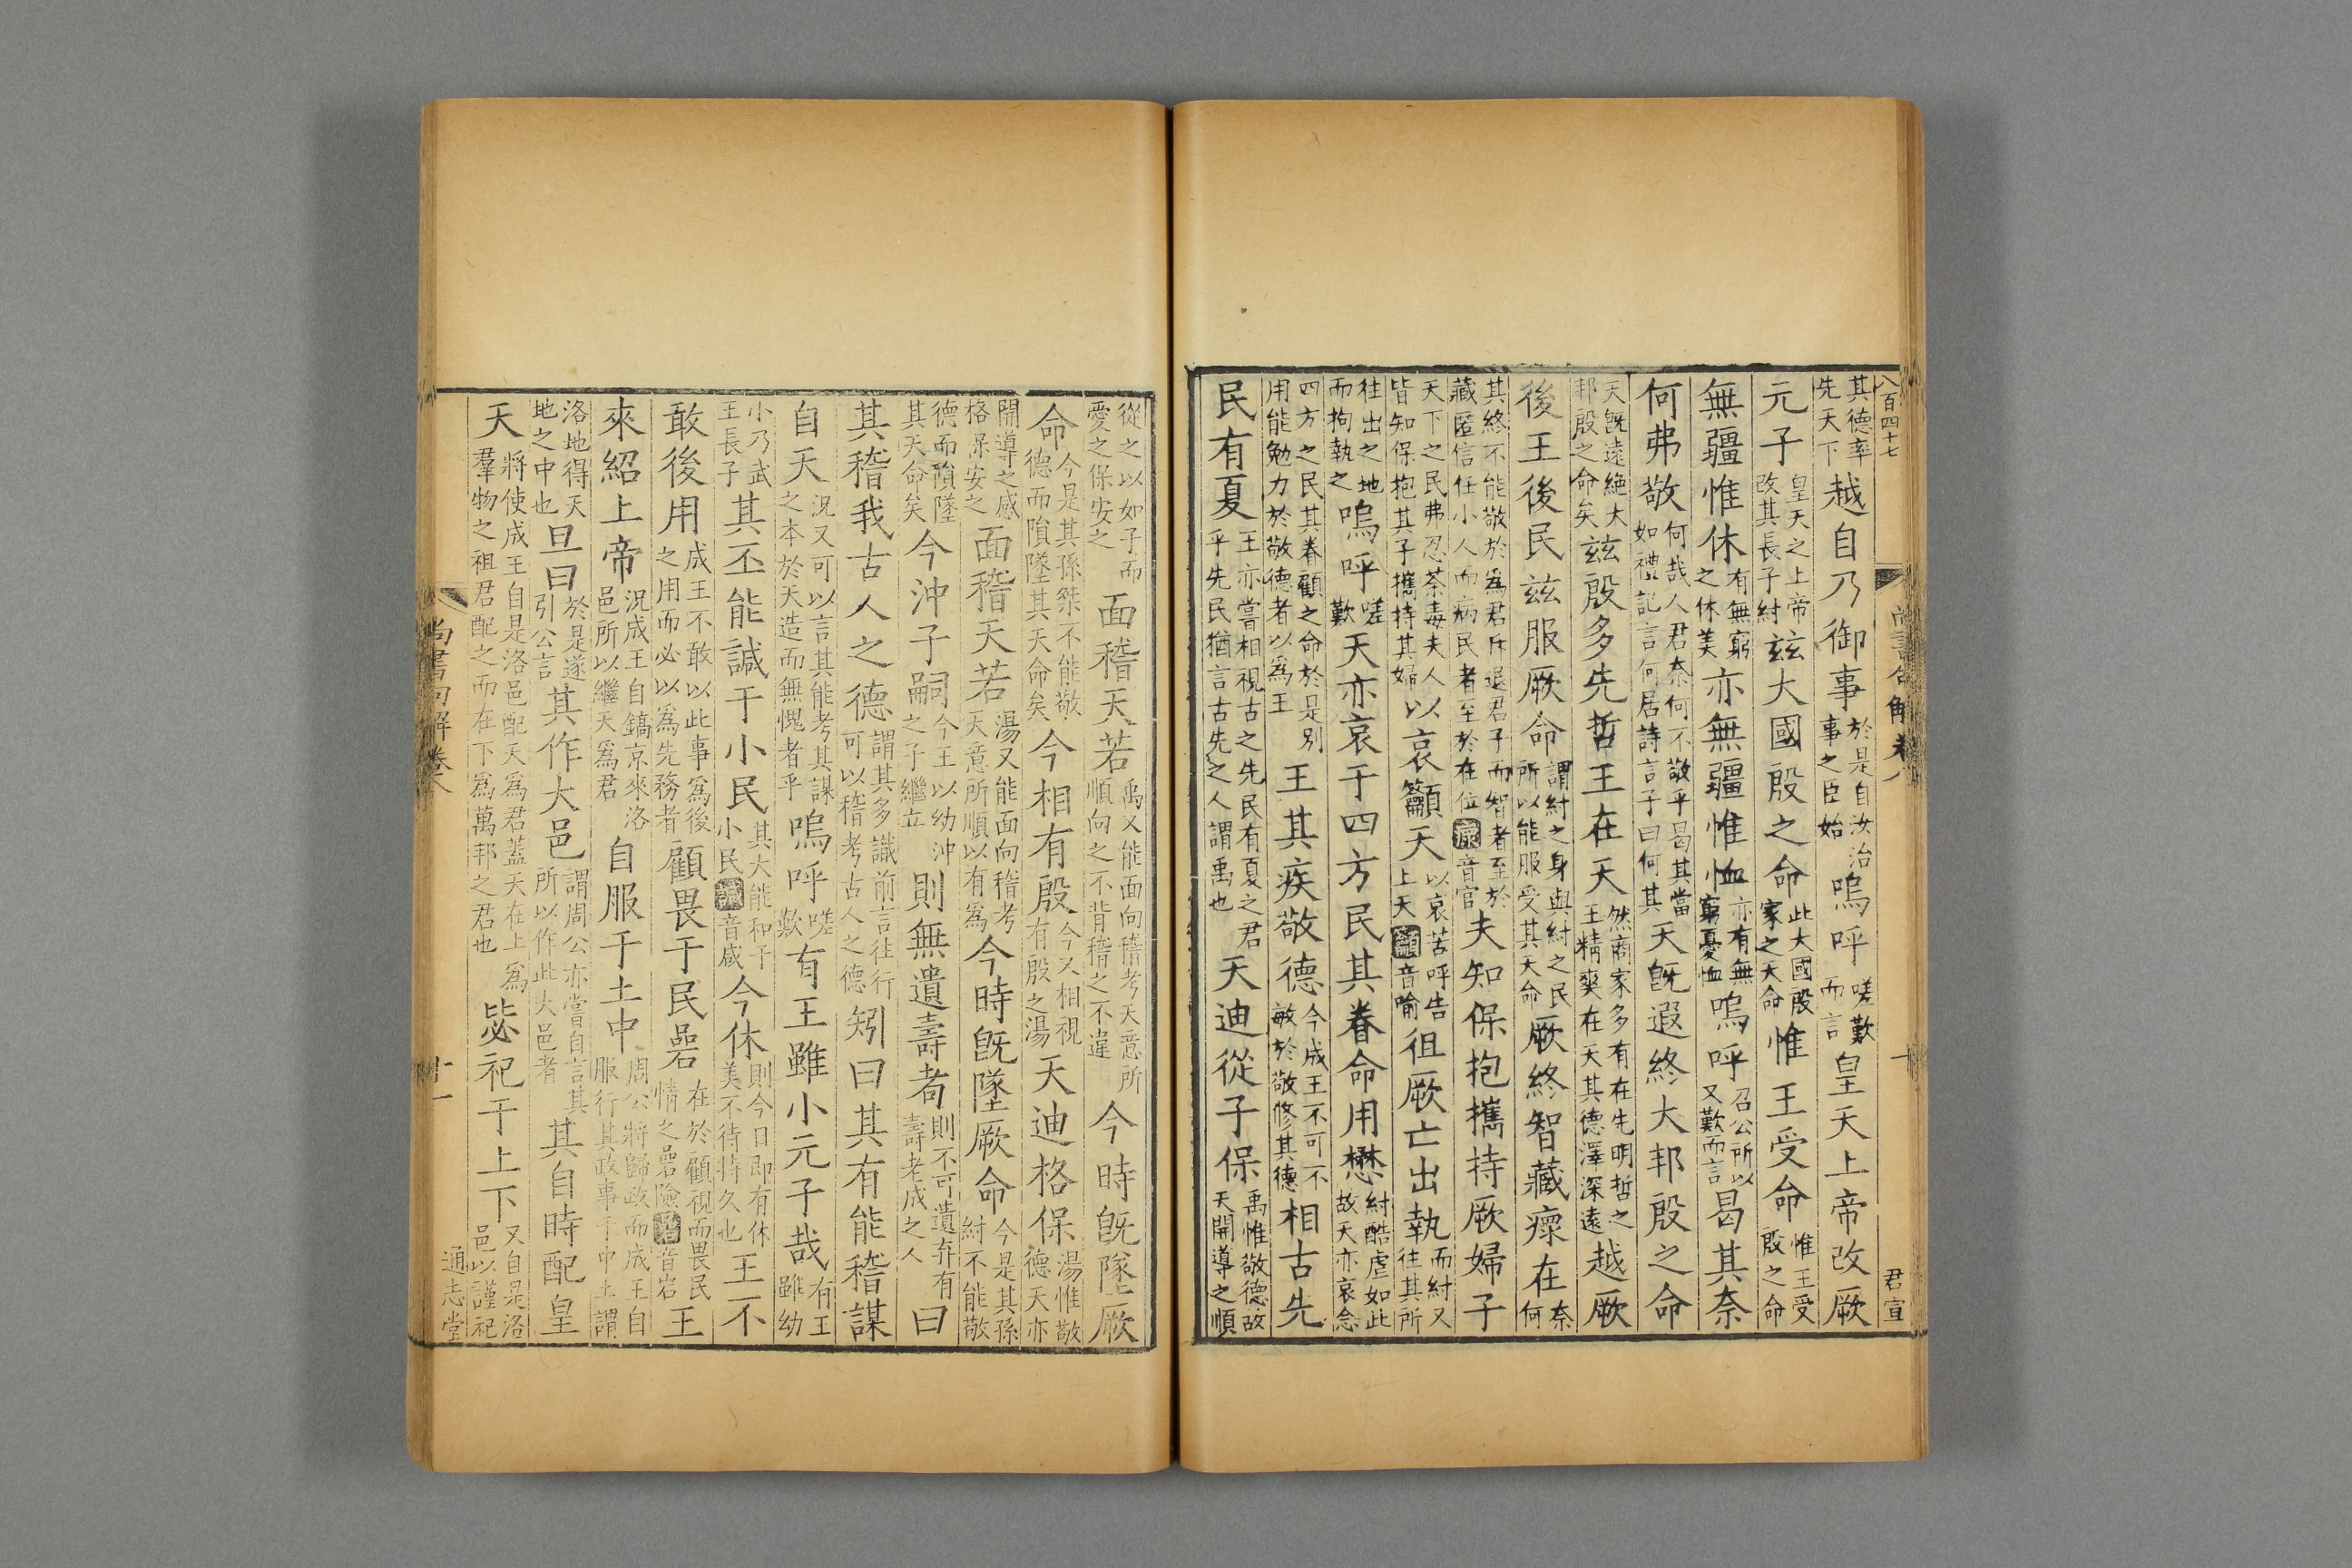 八百四十七 尚書句解卷八 十 君宣
其德率先天下越自乃御事於是自汝治事之臣始嗚呼嗟歎而言皇天上帝改厥
元子皇天之上帝改其長子紂兹大國殷之命此大國殷家之天命惟王受命惟王受殷之命
無疆惟休有無窮之休美亦無疆惟恤亦有無窮憂恤嗚呼召公所以又歎而言曷其奈
何弗敬何哉人君奈何不敬乎曷其當如禮記言何居詩言子曰何其天旣遐終大邦殷之命
天旣遠絶大邦殷之命矣兹殷多先哲王在天然商家多有在先明哲之王精爽在天其德澤深遠越厥
後王後民兹服厥命謂紂之身與紂之民所以能服受其天命厥終智藏瘝在奈何
其終不能敬於爲君斥退君子而智者至於藏匿信任小人而病民者至於在位瘝音官夫知保抱攜持厥婦子
天下之民弗忍荼毒夫人皆知保抱其子攜持其婦以哀籲天以哀苦呼告上天籲音喻徂厥亡出執而紂又往其所
往出之地而拘執之嗚呼嗟歎天亦哀于四方民其眷命用懋紂酷虐如此故天亦哀念
四方之民其眷顧之命於是別用能勉力於敬德者以爲王王其疾敬德今成王不可不敏於敬修其德相古先
民有夏王亦嘗相視古之先民有夏之君乎先民猶言古先之人謂禹也天迪從子保禹惟敬德故天開導之順
從之以如子而愛之保安之面稽天若禹又能面向稽考天意所順向之不背稽之不違今時旣墜厥
命今是其孫桀不能敬德而隕墜其天命矣今相有殷今又相視有殷之湯天迪格保湯惟敬德天亦
開導之感格保安之面稽天若湯又能面向稽考天意所順以有爲今時旣墜厥命今是其孫紂不能敬
德而隕墜其天命矣今沖子嗣今王以幼沖之子繼立則無遺壽耇則不可遺弃有壽老成之人曰
其稽我古人之德謂其多識前言往行可以稽考古人之德矧曰其有能稽謀
自天況又可以言其能考其謀之本於天造而無愧者乎嗚呼嗟歎有王雖小元子哉有王雖幼
小乃武王長子其丕能諴于小民其大能和于小民諴音咸今休則今日即有休美不待持久也王不
敢後用成王不敢以此事爲後之用而必以爲先務者顧畏于民碞在於顧視而畏民情之碞險碞音岩王
來紹上帝況成王自鎬京來洛邑所以繼天爲君自服于土中周公將歸政而成王自服行其政事于中土謂
洛地得天地之中也旦曰於是遂引公言其作大邑謂周公亦嘗自言其所以作此大邑者其自時配皇
天將使成王自是洛邑配天爲君蓋天在上爲羣物之祖君配之而在下爲萬邦之君也毖祀于上下又自是洛邑以謹祀
尚書句解卷八 十一 通志堂